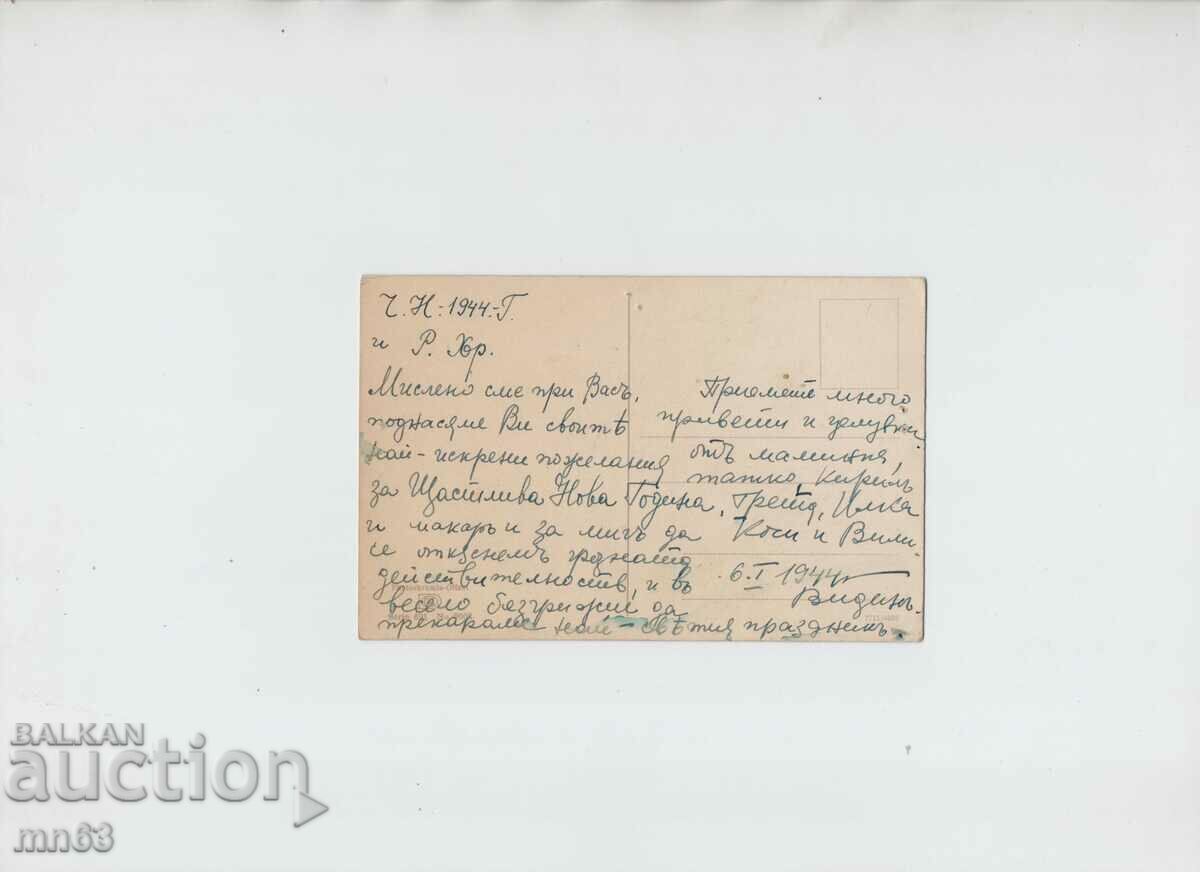 Ч. Н. - 1944. - Г.
и Р. Хр.
Мислено сме при Васъ,
поднасяме Ви своитѣ
най-искрени пожелания
за Щастлива Нова Година,
и макаръ и за мигъ да
се откѫснемъ
действителность, и въ
весело безгрижие да
прекараме най-свѣтия праздникъ.
Приемете много
привети и целувки
отъ
татко, Кирилъ
Грета, Илка
Коси и Вили
6. I 1944
Видинъ
BALKAN
auction
мn63